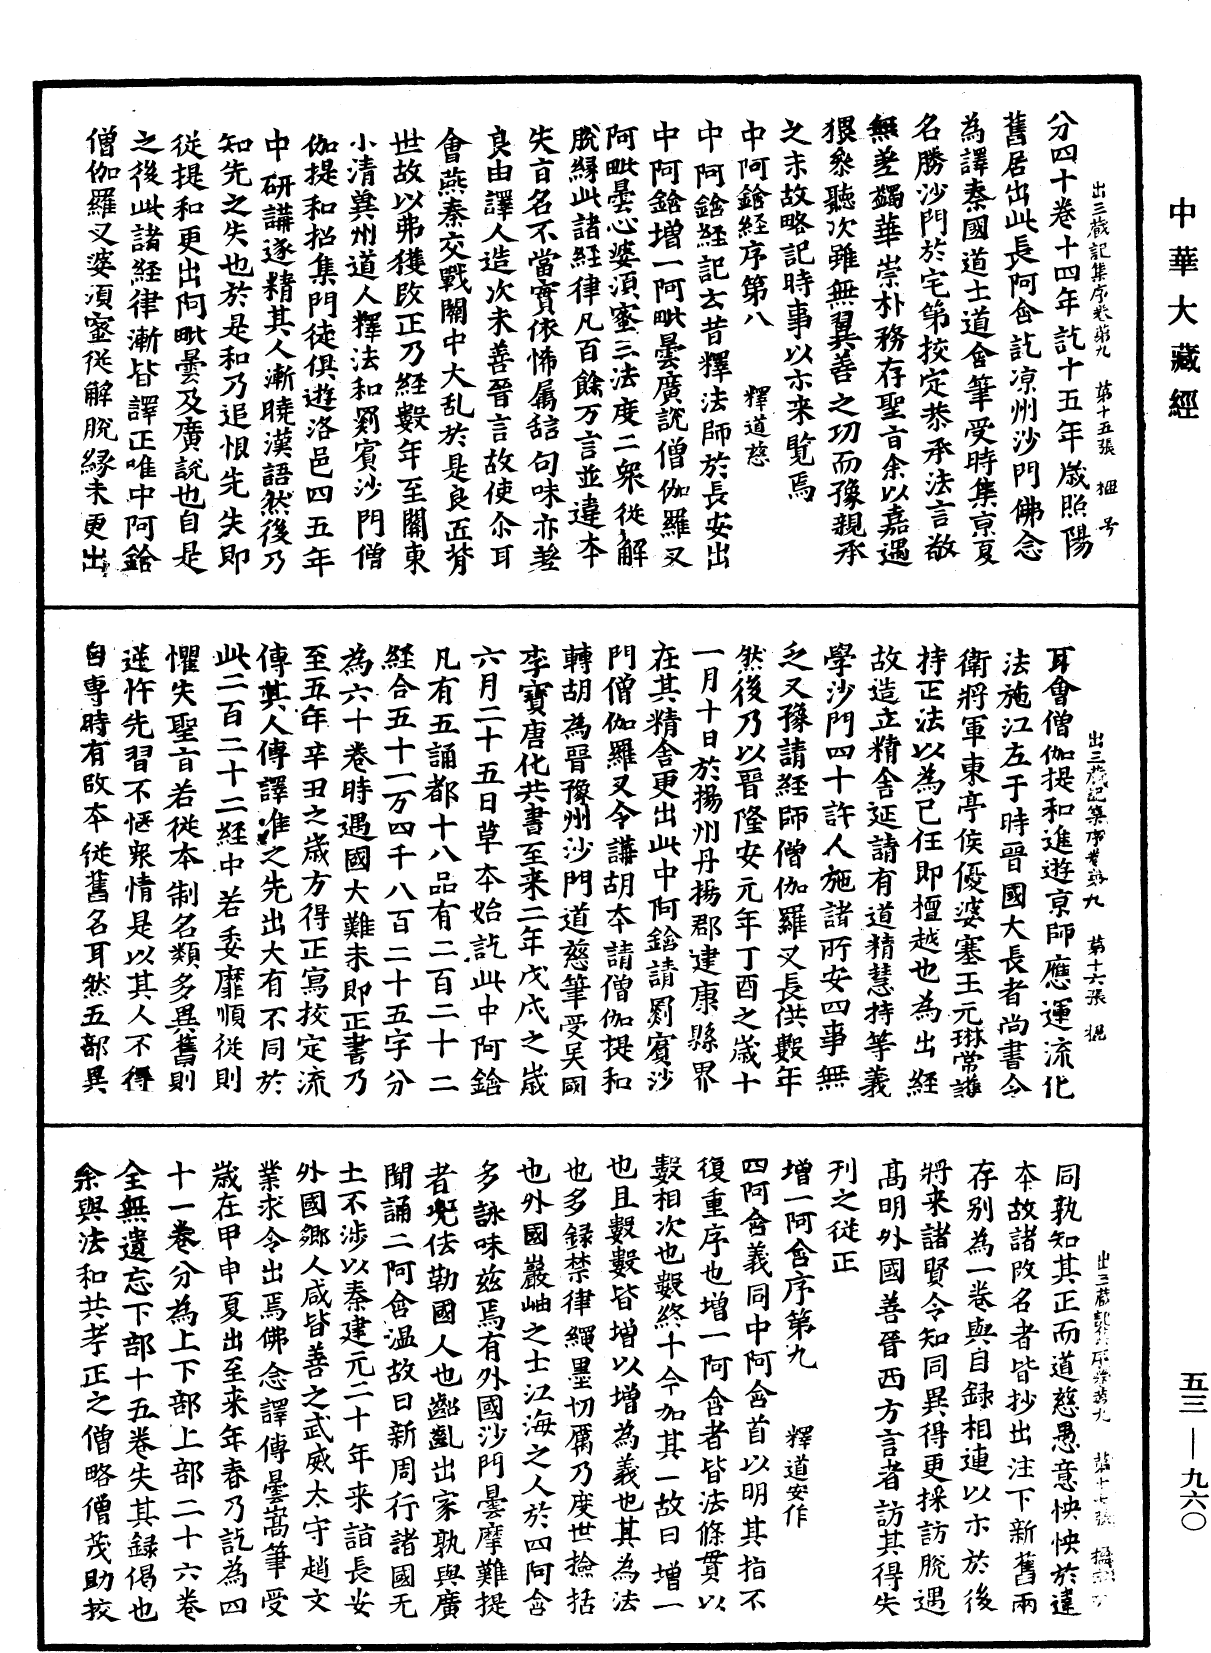 中華大藏經
出三藏記集序卷第九 第十五張 楹号
分四十卷十四年訖十五年歲昭陽
舊居出此長阿含訖涼州沙門佛念
為譯秦國道士道含筆受時集京夏
名勝沙門於宅第挍定恭承法言敬
無差蠲華崇朴務存聖旨余以嘉遇
猥叅聽次雖無翼善之功而豫親承
之末故略記時事以示来覽焉
中阿鋡經序第八 釋道慈
中阿鋡經記云昔釋法師於長安出
中阿鋡增一阿毗曇廣說僧伽羅叉
阿毗曇心婆須蜜三法度二衆從解
脫緣此諸經律凡百餘万言並違本
失旨名不當實依悕属辞句味亦差
良由譯人造次未善晉言故使尒耳
會燕秦交戰關中大乱於是良匠背
世故以弗獲改正乃經數年至關東
小清冀州道人釋法和罽賓沙門僧
伽提和招集門徒俱遊洛邑四五年
中研講遂精其人漸曉漢語然後乃
知先之失也於是和乃追恨先失即
從提和更出阿毗曇及廣說也自是
之後此諸經律漸皆譯正唯中阿鋡
僧伽羅叉婆須蜜從解脫緣未更出
出三藏記集序卷第九 第十六張 楹
耳會僧伽提和進遊京師應運流化
法施江左于時晉國大長者尚書令
衛將軍東亭侯優婆塞王元琳常護
持正法以為己任即檀越也為出經
故造立精舍延請有道精慧持等義
學沙門四十許人施諸所安四事無
乏又豫請經師僧伽羅叉長供數年
然後乃以晉隆安元年丁酉之歲十
一月十日於揚州丹揚郡建康縣界
在其精舍更出此中阿鋡請罽賓沙
門僧伽羅叉令講胡本請僧伽提和
轉胡為晉豫州沙門道慈筆受吳國
李寶唐化共書至来二年戊戌之歲
六月二十五日草本始訖此中阿鋡
凡有五誦都十八品有二百二十二
經合五十一万四千八百二十五字分
為六十卷時遇國大難未即正書乃
至五年辛丑之歲方得正寫挍定流
傳其人傳譯准之先出大有不同於
此二百二十二經中若委靡順從則
懼失聖旨若從本制名類多異舊則
逆忤先習不愜衆情是以其人不得
自專時有改本從舊名耳然五部異
出三藏記集序卷第九 第十七張
同孰知其正而道慈愚意怏怏於違
本故諸改名者皆抄出注下新舊兩
存別為一卷與自録相連以示於後
將来諸賢令知同異得更採訪脫遇
高明外國善晉西方言者訪其得失
刊之從正
增一阿含序第九 釋道安作
四阿含義同中阿含首以明其指不
復重序也增一阿含者皆法條貫以
數相次也數終十今加其一故曰增一
也且數數皆增以增為義也其為法
也多録禁律繩墨切厲乃度世撿括
也外國巖岫之士江海之人於四阿含
多詠味兹焉有外國沙門曇摩難提
者兜佉勒國人也齠齔出家孰與廣
聞誦二阿含温故日新周行諸國无
土不涉以秦建元二十年来詣長安
外國鄉人咸皆善之武威太守趙文
業求令出焉佛念譯傳曇嵩筆受
歲在甲申夏出至来年春乃訖為四
十一卷分為上下部上部二十六卷
全無遺忘下部十五卷失其録偈也
余與法和共考正之僧略僧茂助挍
五三—九六〇